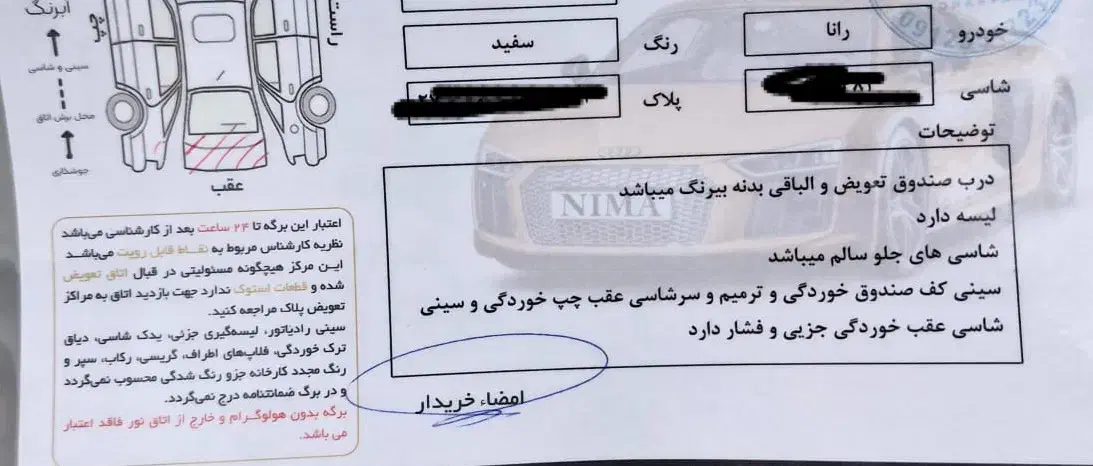 خودرو
رانا
رنگ
سفید
شاسی
پلاک
توضیحات
درب صندوق تعویض و الباقی بدنه بیرنگ میباشد
لیسه دارد
شاسی های جلو سالم میباشد
سینی کف صندوق خوردگی و ترمیم و سرشاسی عقب چپ خوردگی و سینی
شاسی عقب خوردگی جزیی و فشار دارد
NIMA
امضاء خریدار
راست
آبرنگ
سینی و شاسی
محل برش اتاق
جوشکاری
عقب
اعتبار این برگه تا ۲۴ ساعت بعد از کارشناسی می‌باشد
نظریه کارشناس مربوط به نقاط قابل رویت می‌باشد
این مرکز هیچگونه مسئولیتی در قبال اتاق تعویض
شده و قطعات استوک ندارد جهت بازدید اتاق به مراکز
تعویض پلاک مراجعه کنید.
سینی رادیاتور، لیسه‌گیری جزئی، یدک شاسی، دیاق
ترک خوردگی، فلاپ‌های اطراف، گریسی، رکاب، سپر و
رنگ مجدد کارخانه جزو رنگ شدگی محسوب نمی‌گردد
و در برگ ضمانتنامه درج نمی‌گردد.
برگه بدون هولوگرام و خارج از اتاق نور فاقد اعتبار
می باشد.